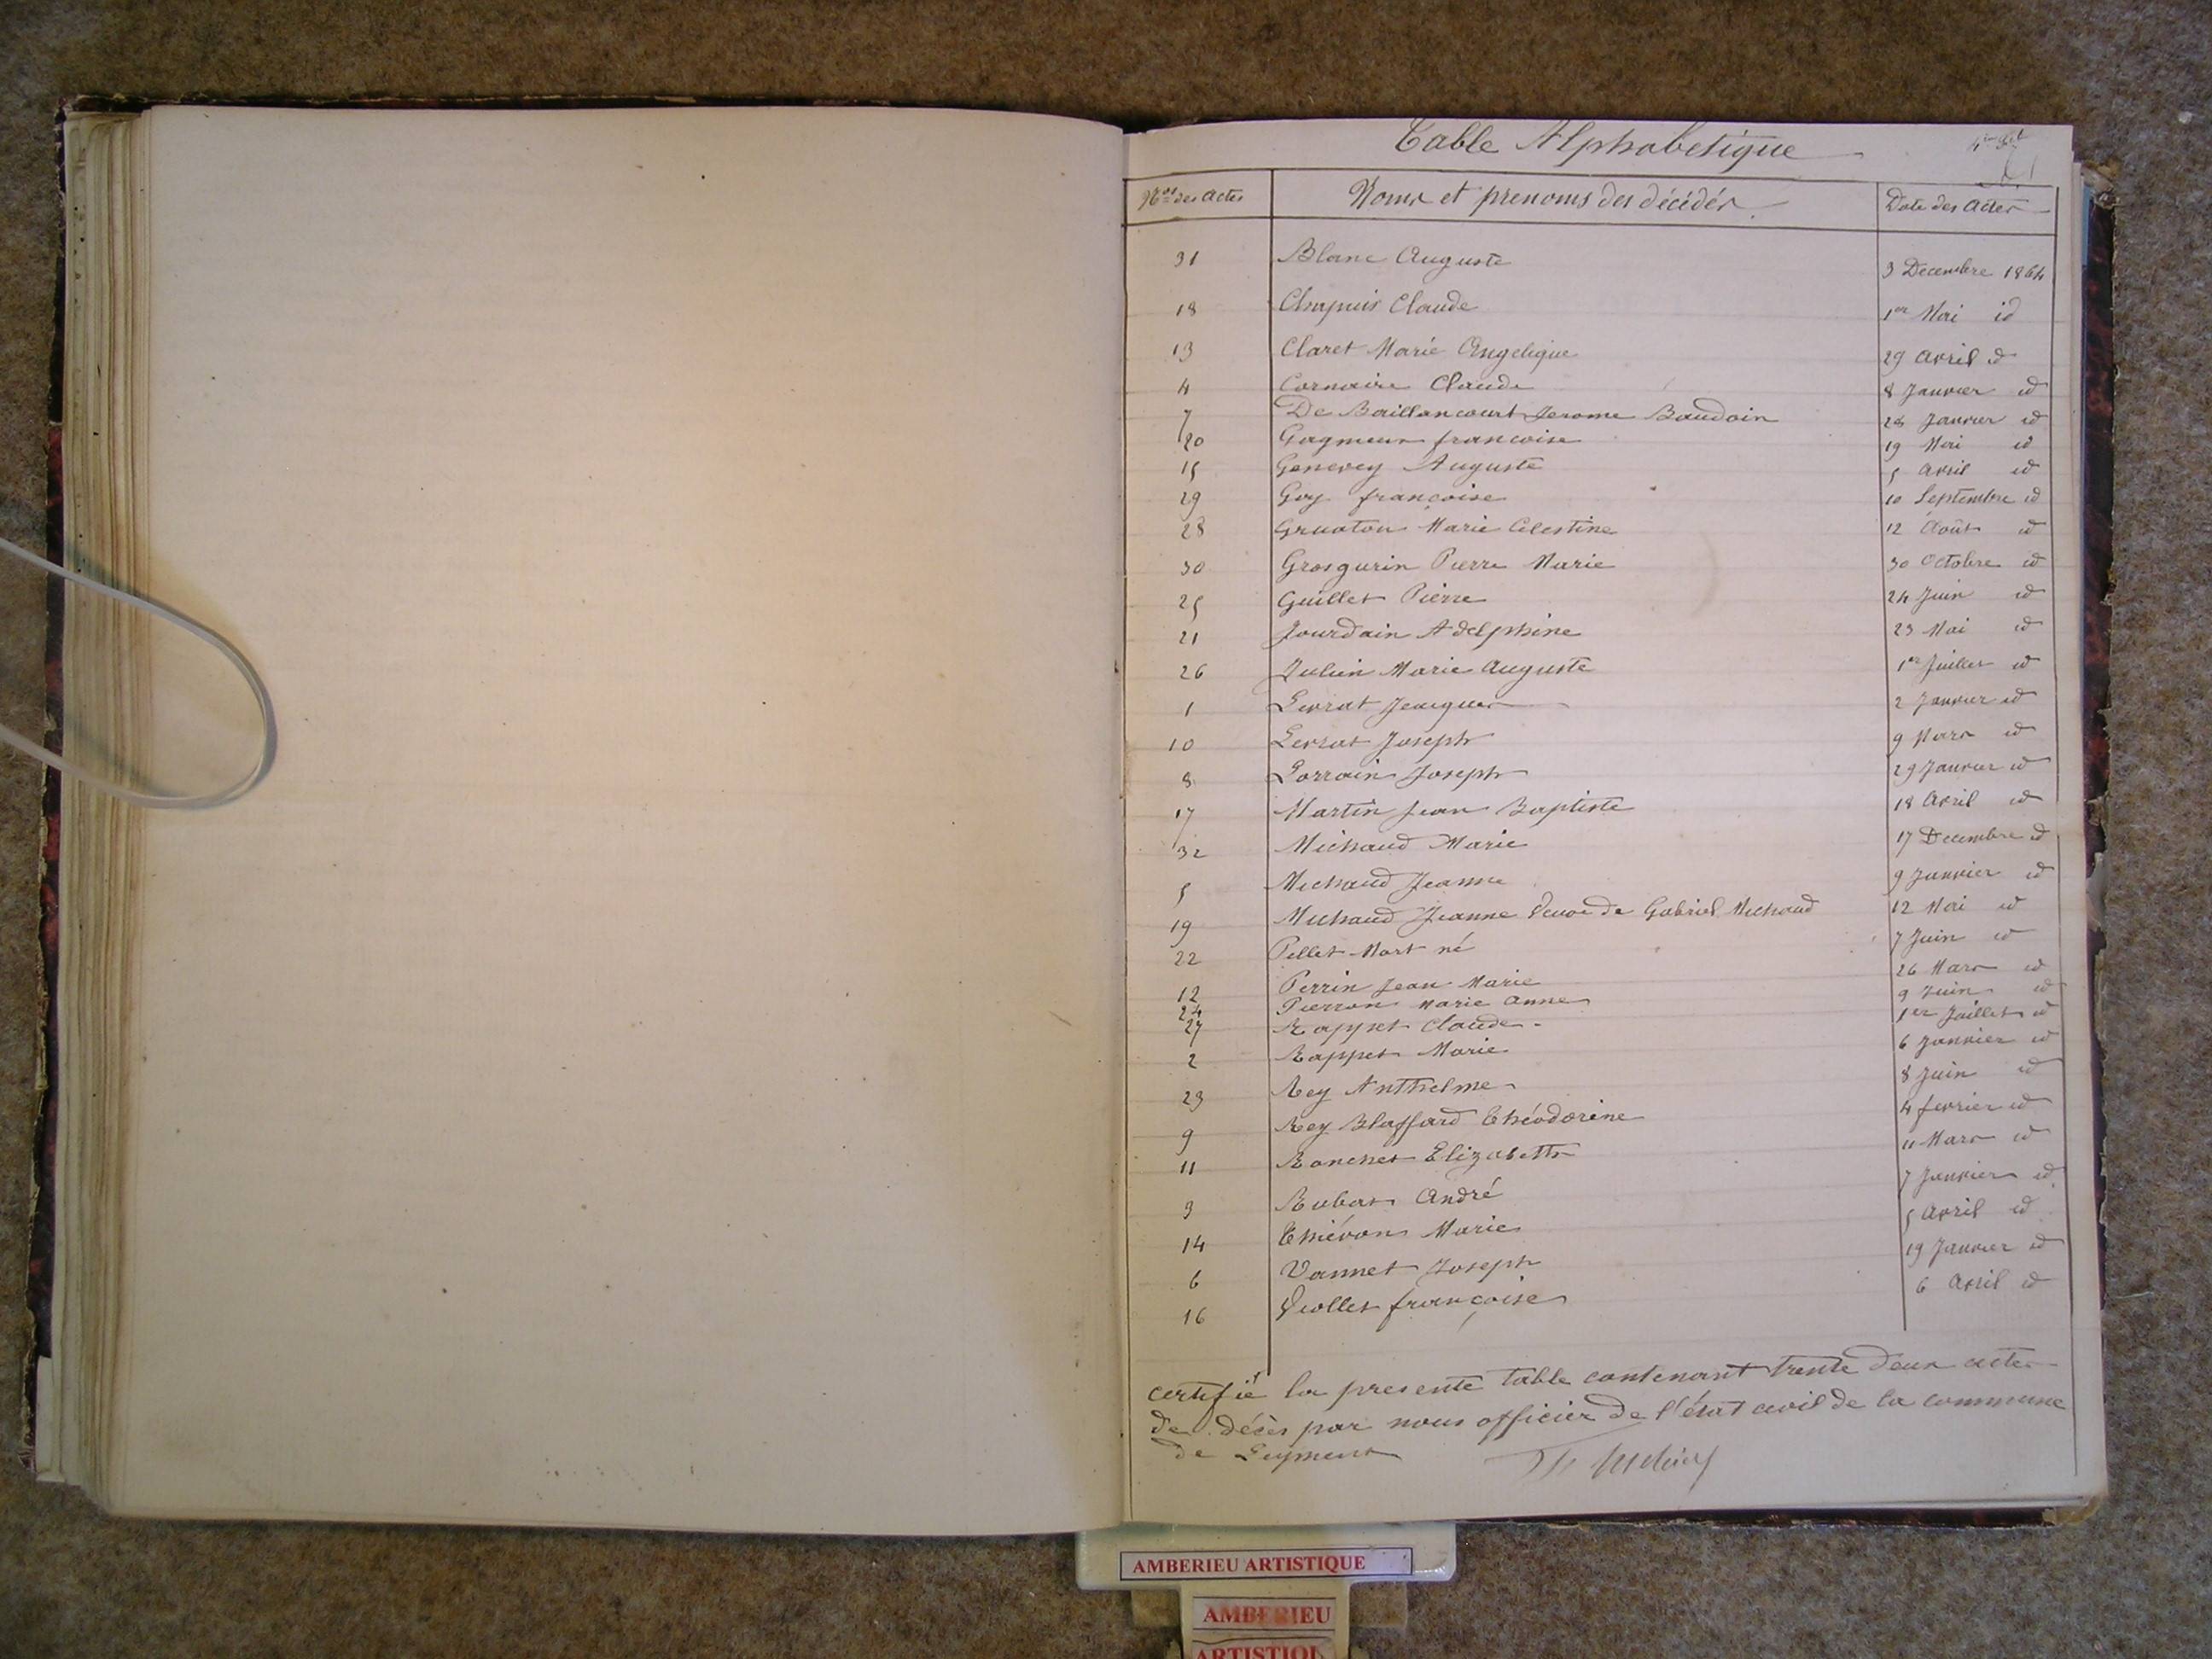 Table Alphabetique
Nos des Actes Noms et prenoms des décédés Date des Actes
31 Blanc Auguste 3 Decembre 1864
18 Chapuis Claude 1er Mai id
13 Claret Marie Angelique 29 Avril id
4 Cornaire Claude 8 Janvier id
7 De Baillancourt Jerome Baudoin 28 Janvier id
20 Gagmeur francoise 19 Mai id
15 Genevey Auguste 5 Avril id
29 Goy françoise 10 Septembre id
28 Gruaton Marie Celestine 12 Août id
30 Grosgurin Pierre Marie 30 Octobre id
25 Guillet Pierre 24 Juin id
21 Jourdain Adelphine 23 Mai id
26 Julien Marie Auguste 1er Juillet id
1 Levrat Jacques 2 Janvier id
10 Levrat Joseph 9 Mars id
8 Lorrain Joseph 29 Janvier id
17 Martin Jean Baptiste 18 Avril id
32 Michaud Marie 17 Decembre id
5 Michaud Jeanne 9 Janvier id
19 Michaud Jeanne Veuve de Gabriel Michaud 12 Mai id
22 Pellet Mort né 7 Juin id
12 Perrin Jean Marie 26 Mars id
24 Pierron Marie Anne 9 Juin id
27 Rappet Claude 1er Juillet id
2 Rappet Marie 6 Janvier id
23 Rey Anthelme 8 Juin id
9 Rey Blaffard Théodorine 4 fevrier id
11 Ronchet Elizabeth 11 Mars id
3 Rubat André 7 Janvier id
14 Thiévon Marie 5 Avril id
6 Vannet Joseph 19 Janvier id
16 Viollet françoise 6 Avril id
certifié la presente table contenant trente deux actes
de décès par nous officier de l'état civil de la commune
de Leyment
AMBERIEU ARTISTIQUE
AMBERIEU